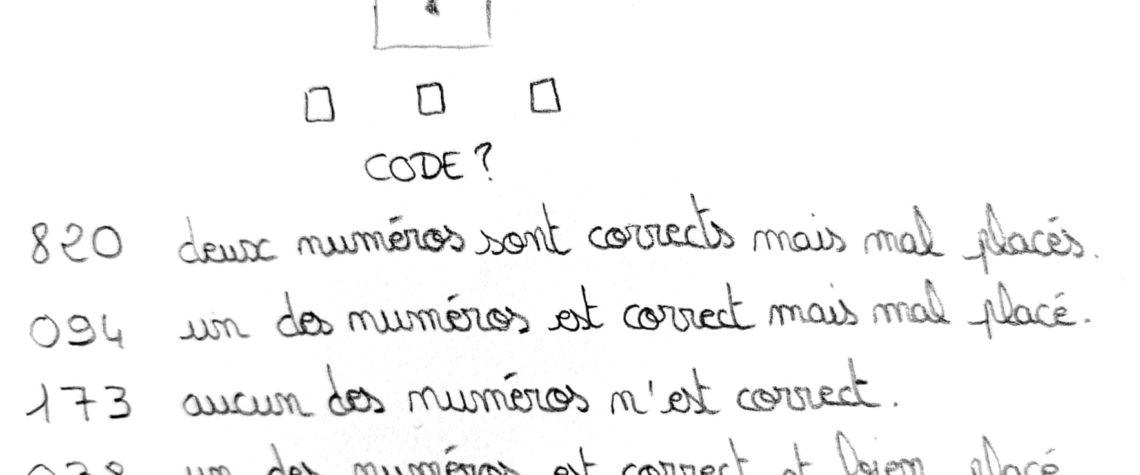 CODE ?
820 deux numéros sont corrects mais mal placés.
094 un des numéros est correct mais mal placé.
173 aucun des numéros n'est correct.
un des numéros est correct et bien placé